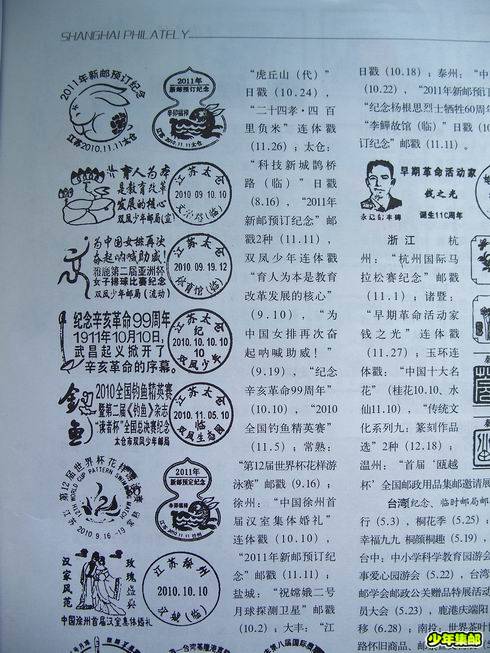 SHANGHAI PHILATELY
2011年新邮预订纪念
江苏 2010.11.11 太仓
2011年
新邮预订纪念
育人为本
是教育改革
发展的核心
双凤少年邮局(宣)
江苏太仓
2010 09.10.10
为中国女排再次
奋起呐喊助威!
雅鹿第二届亚洲杯
女子排球比赛纪念
双凤少年邮局(流动)
江苏太仓
2010.09.19.12
体育馆(临)
纪念辛亥革命99周年
1911年10月10日,
武昌起义掀开了
辛亥革命的序幕。
江苏太仓
纪
2010.10.10
10
双凤少年
2010全国钓鱼精英赛
暨第二届《钓鱼》杂志
"读者杯"全国总决赛纪念
太仓市双凤少年邮局
江苏太仓
2010.11.05.10
(临)
双凤生态园
第12届世界杯花样游泳赛
2010.9.16-19
2011年
新邮预定纪念
汉家风范
玫瑰盛典
中国徐州首届汉室集体婚礼
江苏徐州
2010.10.10
汉城(临)
"虎丘山(代)"
日戳(10.24),
"二十四孝·四 百
里负米"连体戳
(11.26);太仓:
"科技新城鹊桥
路(临)"日戳
(8.16),"2011年
新邮预订纪念"邮
戳2种(11.11),
双凤少年连体戳
"育人为本是教育
改革发展的核心"
(9.10),"为
中国女排再次奋
起呐喊助威!"
(9.19),"纪念
辛亥革命99周年"
(10.10),"2010
全国钓鱼精英赛"
(11.5);常熟:
"第12届世界杯花样游
泳赛"邮戳(9.16);
徐州:"中国徐州首
届汉室集体婚礼"
连体戳(10.10),
"2011年新邮预订纪
念"邮戳(11.11);
盐城:"祝嫦娥二号
月球探测卫星"邮戳
(10.2);大丰:"江
日戳(10.18);泰州:"中
(10.22),"2011年新邮预订
"纪念杨根思烈士牺牲60周年
"李鱓故馆(临)"日戳(1
订纪念"邮戳(11.11)。
早期革命活动家
钱之光
诞生110周年
浙江 杭
州:"杭州国际马
拉松赛纪念"邮戳
(11.1);诸暨:
"早期革命活动家
钱之光"邮戳
(11.27);玉环连
体戳:"中国十大名
花"(桂花10.10、水
仙11.10),"传统文
化系列九:篆刻作品
选"2种(12.18);
温州:"首届'瓯越
杯'全国邮政用品集邮邀请展
台湾纪念、临时邮局邮
行(5.3),桐花季(5.25);
幸福九九 桐颜桐趣(
台中:中小学科学教育园游会
事爱心园游会(5.22),台
邮学会邮政公关赠品特展活动
员大会(5.23),鹿港庆端阳
移(6.28);南投:世界茶叶
路怀旧商品、
少年集邮